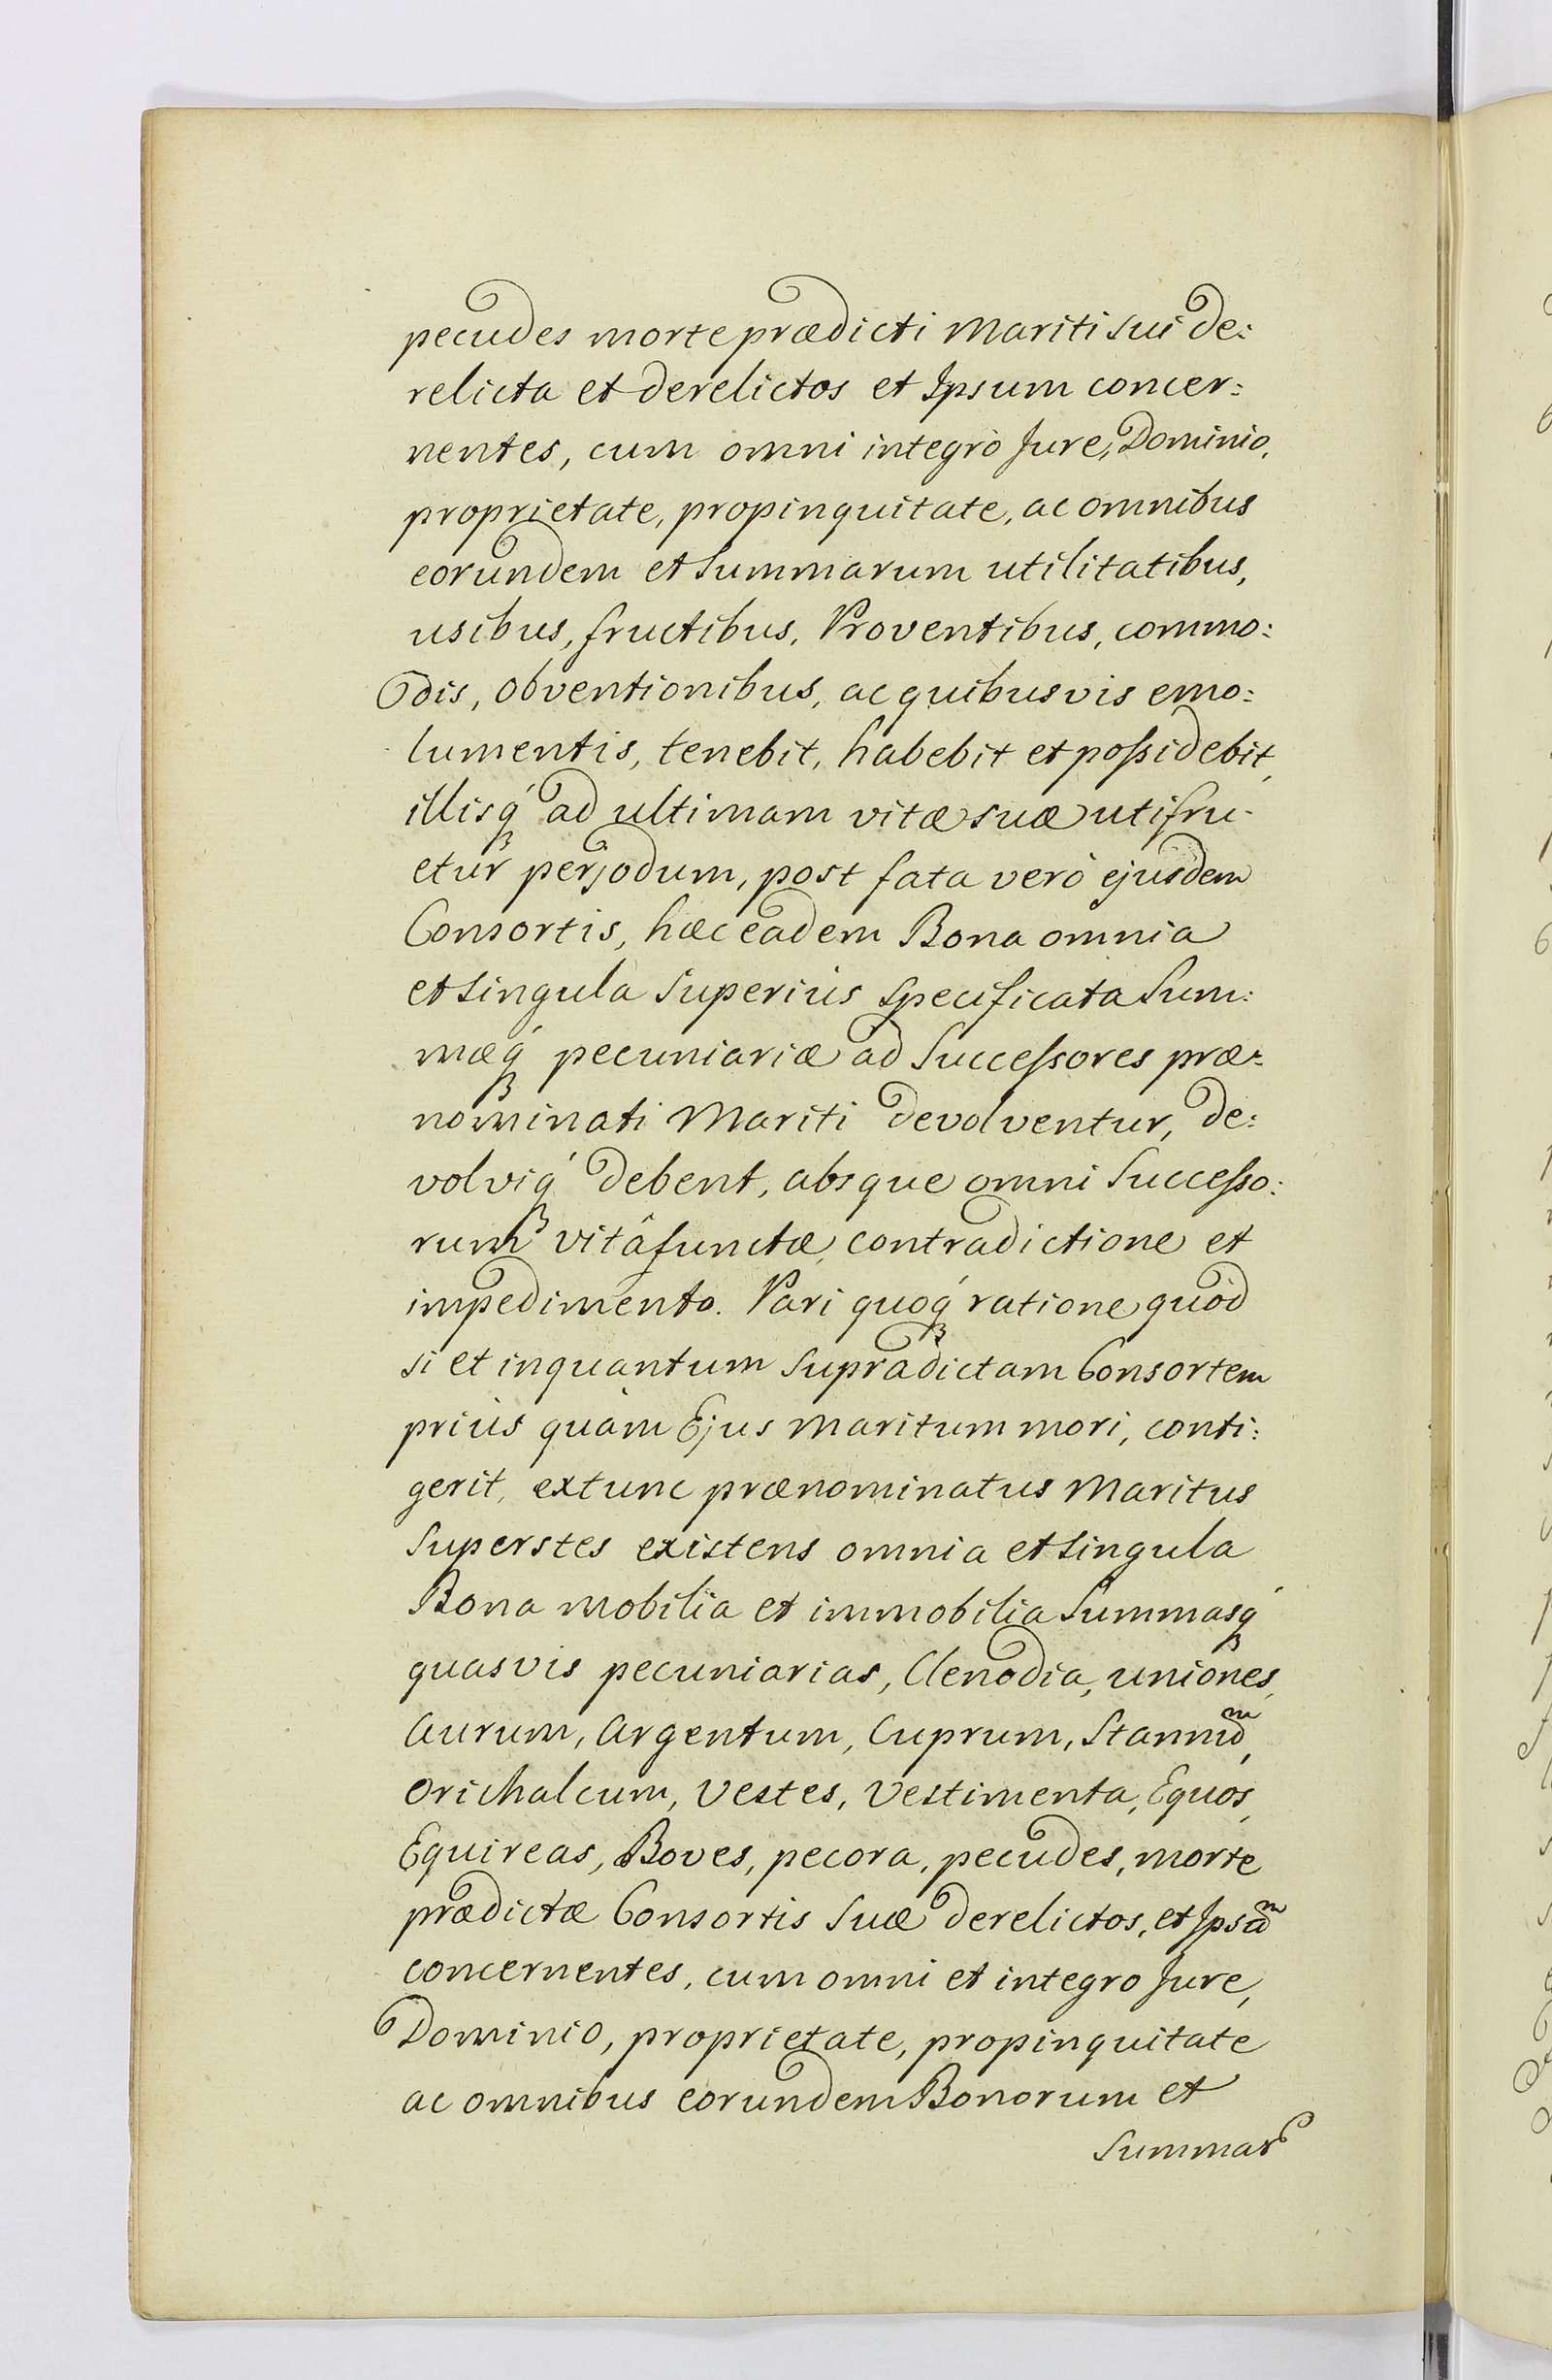 pecudes morte prædicti Mariti sui de:
relicta et derelictos et Ipsum concer:
nentes, cum omni integrò Jure, Dominio,
proprietate, propinquitate, ac omnibus
eorundem et Summarum utilitatibus,
usibus, fructibus, Proventibus, commo:
dis, obventionibus, ac quibusvis emo:
lumentis, tenebit, habebit et poſsidebit,
illisq́ ad ultimam vitæ suæ utifru-
etur perjodum, post fata verò ejusdem
Consortis, hæc eadem Bona omnia
et Singula Superiùs Specificata Sum:
mæq́ pecuniariæ ad Succeſsores præ:
nominati Mariti devolventur, de:
volviq́ debent, absque omni Succeſso:
rum vitâ functæ, contradictione et
impedimento. Pari quoq́ ratione quòd
si et inquantum Supradictam Consortem
priùs quàm Ejus Maritum mori, conti:
gerit, extunc prænominatus Maritus
Superstes existens omnia et Singula
Bona mobilia et immobilia Summasq́
quasvis pecuniarias, Clenodia, uniones,
Aurum, Argentum, Cuprum, Stannũ,
Orichalcum, Vestes, Vestimenta, Equos,
Equireas, Boves, pecora, pecudes, morte
prædictæ Consortis Suæ derelictos, et Ipsã
concernentes, cum omni et integro Jure,
Dominio, proprietate, propinquitate
ac omnibus eorundem Bonorum et
Summar